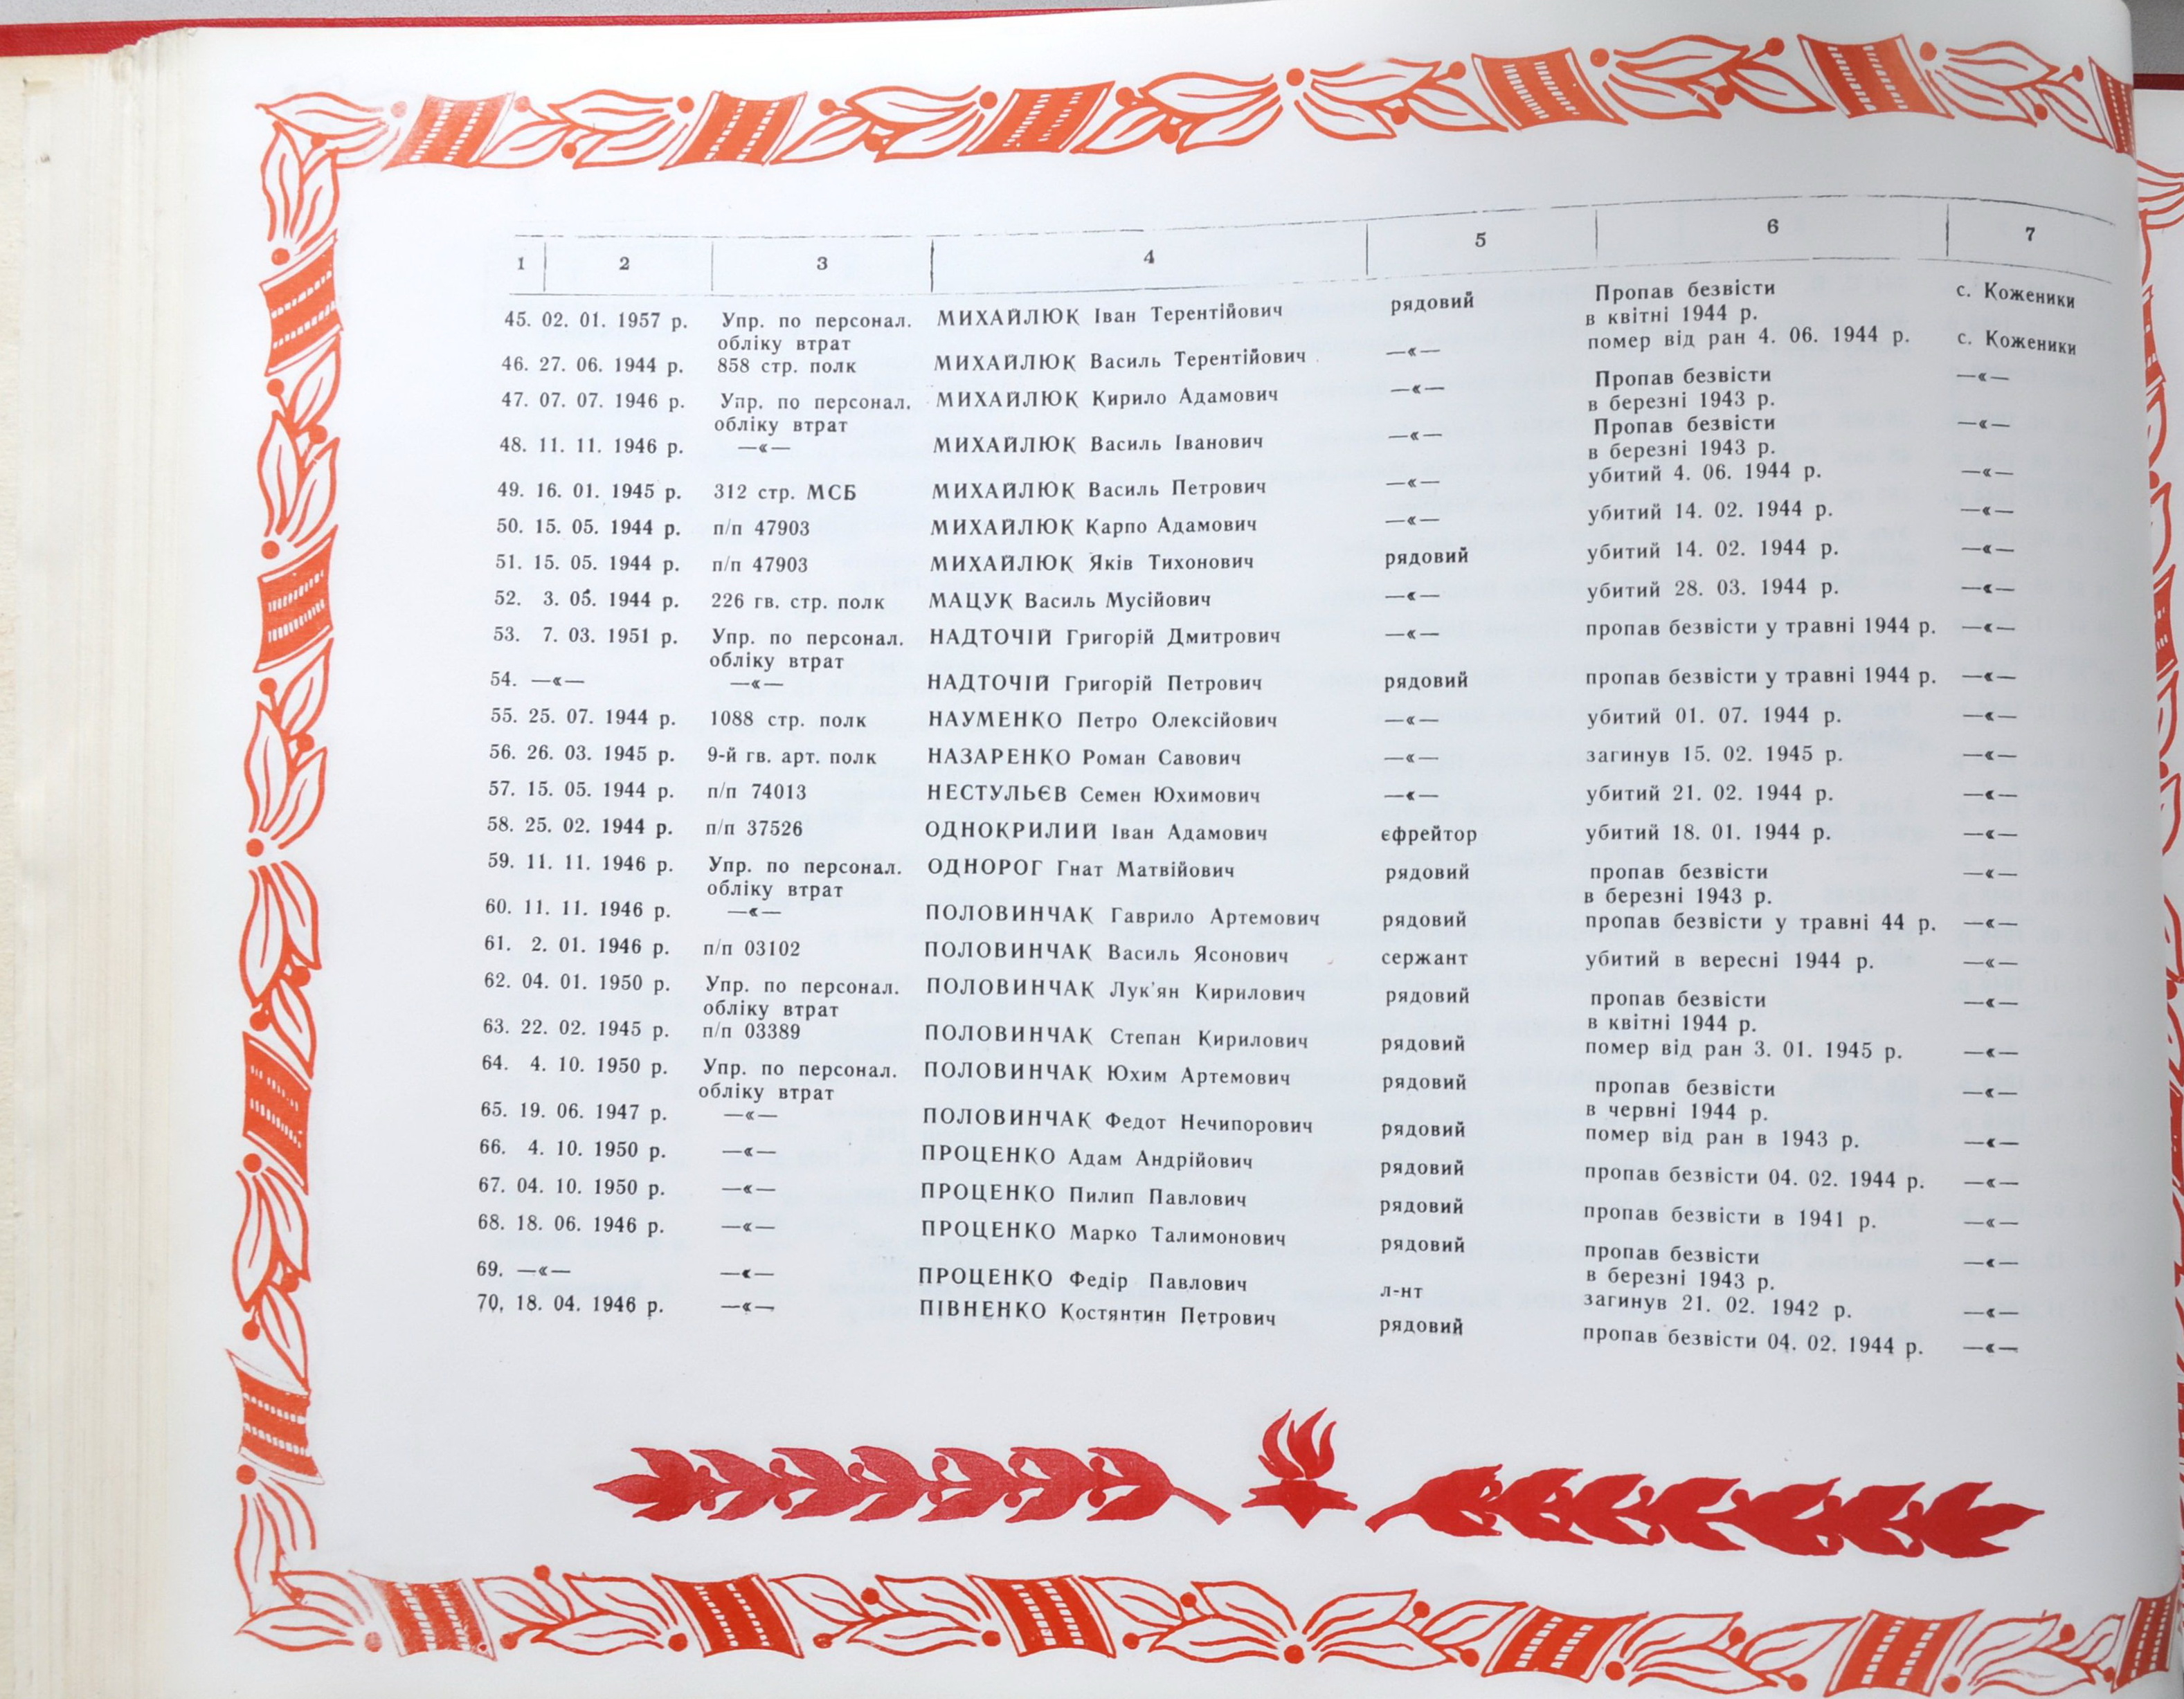 1 2 3 4 5 6 7
45. 02. 01. 1957 р. Упр. по персонал. МИХАЙЛЮК Іван Терентійович рядовий Пропав безвісти с. Коженики
обліку втрат в квітні 1944 р.
46. 27. 06. 1944 р. 858 стр. полк МИХАЙЛЮК Василь Терентійович —«— помер від ран 4. 06. 1944 р. с. Коженики
47. 07. 07. 1946 р. Упр. по персонал. МИХАЙЛЮК Кирило Адамович —«— Пропав безвісти —«—
обліку втрат в березні 1943 р.
48. 11. 11. 1946 р. —«— МИХАЙЛЮК Василь Іванович —«— Пропав безвісти —«—
в березні 1943 р.
49. 16. 01. 1945 р. 312 стр. МСБ МИХАЙЛЮК Василь Петрович —«— убитий 4. 06. 1944 р. —«—
50. 15. 05. 1944 р. п/п 47903 МИХАЙЛЮК Карпо Адамович —«— убитий 14. 02. 1944 р. —«—
51. 15. 05. 1944 р. п/п 47903 МИХАЙЛЮК Яків Тихонович рядовий убитий 14. 02. 1944 р. —«—
52. 3. 05. 1944 р. 226 гв. стр. полк МАЦУК Василь Мусійович —«— убитий 28. 03. 1944 р. —«—
53. 7. 03. 1951 р. Упр. по персонал. НАДТОЧІЙ Григорій Дмитрович —«— пропав безвісти у травні 1944 р. —«—
обліку втрат
54. —«— —«— НАДТОЧІЙ Григорій Петрович рядовий пропав безвісти у травні 1944 р. —«—
55. 25. 07. 1944 р. 1088 стр. полк НАУМЕНКО Петро Олексійович —«— убитий 01. 07. 1944 р. —«—
56. 26. 03. 1945 р. 9-й гв. арт. полк НАЗАРЕНКО Роман Савович —«— загинув 15. 02. 1945 р. —«—
57. 15. 05. 1944 р. п/п 74013 НЕСТУЛЬЄВ Семен Юхимович —«— убитий 21. 02. 1944 р. —«—
58. 25. 02. 1944 р. п/п 37526 ОДНОКРИЛИЙ Іван Адамович єфрейтор убитий 18. 01. 1944 р. —«—
59. 11. 11. 1946 р. Упр. по персонал. ОДНОРОГ Гнат Матвійович рядовий пропав безвісти —«—
обліку втрат в березні 1943 р.
60. 11. 11. 1946 р. —«— ПОЛОВИНЧАК Гаврило Артемович рядовий пропав безвісти у травні 44 р. —«—
61. 2. 01. 1946 р. п/п 03102 ПОЛОВИНЧАК Василь Ясонович сержант убитий в вересні 1944 р. —«—
62. 04. 01. 1950 р. Упр. по персонал. ПОЛОВИНЧАК Лук’ян Кирилович рядовий пропав безвісти —«—
обліку втрат в квітні 1944 р.
63. 22. 02. 1945 р. п/п 03389 ПОЛОВИНЧАК Степан Кирилович рядовий помер від ран 3. 01. 1945 р. —«—
64. 4. 10. 1950 р. Упр. по персонал. ПОЛОВИНЧАК Юхим Артемович рядовий пропав безвісти —«—
обліку втрат в червні 1944 р.
65. 19. 06. 1947 р. —«— ПОЛОВИНЧАК Федот Нечипорович рядовий помер від ран в 1943 р. —«—
66. 4. 10. 1950 р. —«— ПРОЦЕНКО Адам Андрійович рядовий пропав безвісти 04. 02. 1944 р. —«—
67. 04. 10. 1950 р. —«— ПРОЦЕНКО Пилип Павлович рядовий пропав безвісти в 1941 р. —«—
68. 18. 06. 1946 р. —«— ПРОЦЕНКО Марко Талимонович рядовий пропав безвісти —«—
в березні 1943 р.
69. —«— —«— ПРОЦЕНКО Федір Павлович л-нт загинув 21. 02. 1942 р. —«—
70, 18. 04. 1946 р. —«— ПІВНЕНКО Костянтин Петрович рядовий пропав безвісти 04. 02. 1944 р. —«—